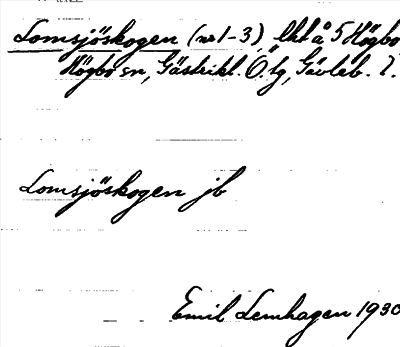 Lomsjöskogen (nr 1-3), lht å 5 Högbo
Högbo sn, Gästrikl. Ö. tg, Gävleb. l.
Lomsjöskogen jb
Emil Lemhagen 1930